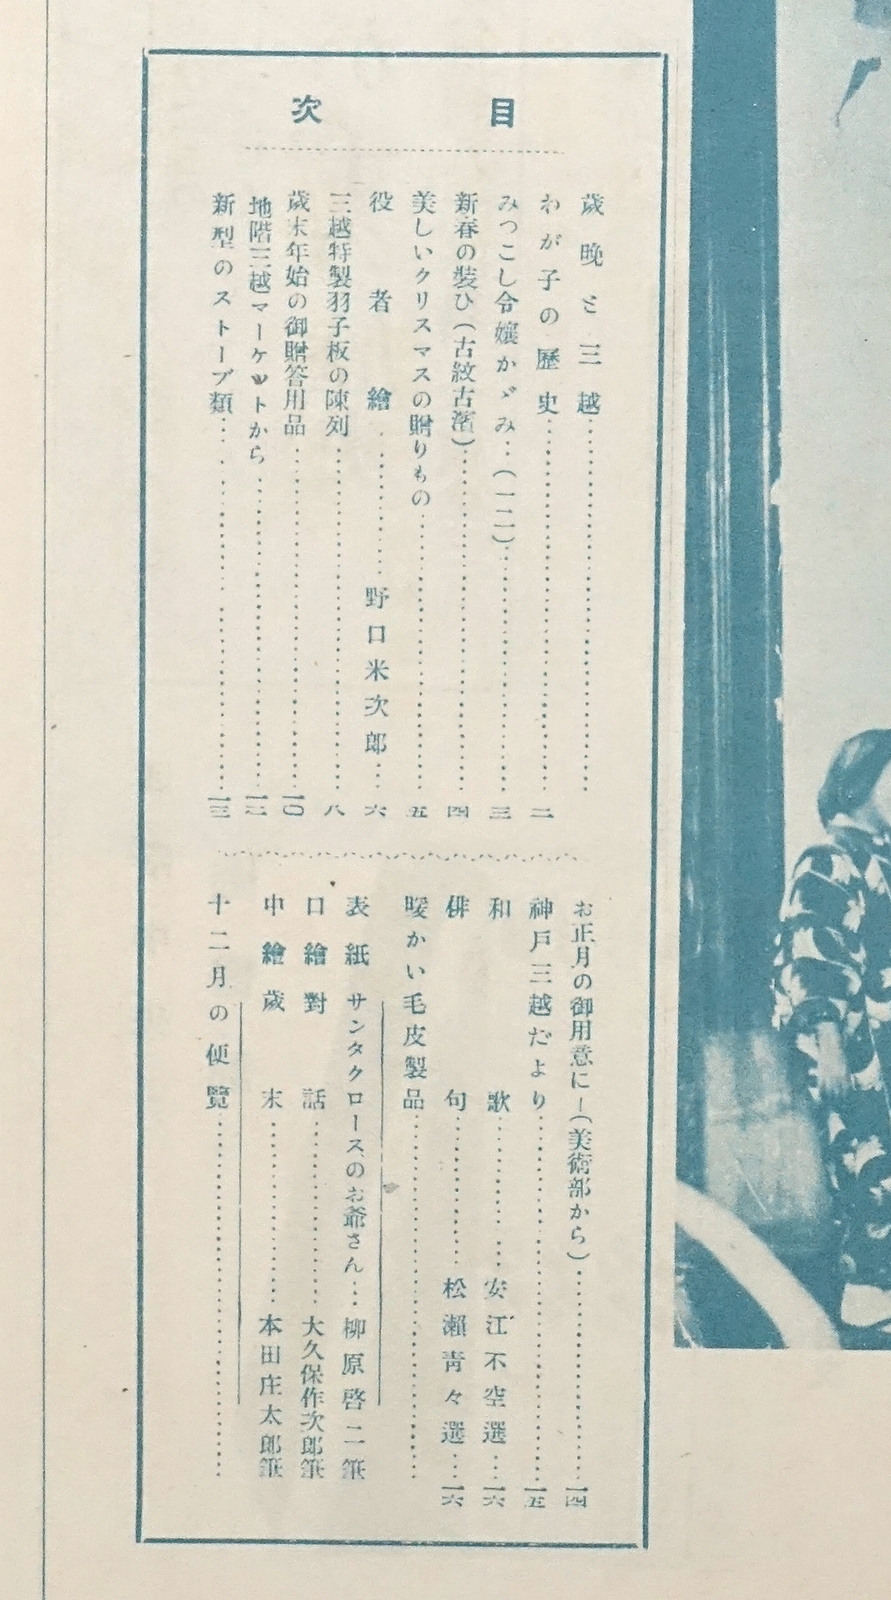 目次
歳晩と三越……
わが子の歴史……二
みつこし令嬢かゞみ…(一二)……三
新春の装ひ(古紋古濱)……四
美しいクリスマスの贈りもの……五
役者繪……野口米次郎…六
三越特製羽子板の陳列……八
歳末年始の御贈答用品……一〇
地階三越マーケットから……一二
新型のストーブ類……一三
お正月の御用意に―(美術部から)……一四
神戸三越だより……一五
和歌……安江不空選…一六
俳句……松瀬青々選…一六
暖かい毛皮製品……
表紙 サンタクロースのお爺さん…柳原啓二筆
口繪 對話……大久保作次郎筆
中繪 歳末……本田庄太郎筆
十二月の便覽……